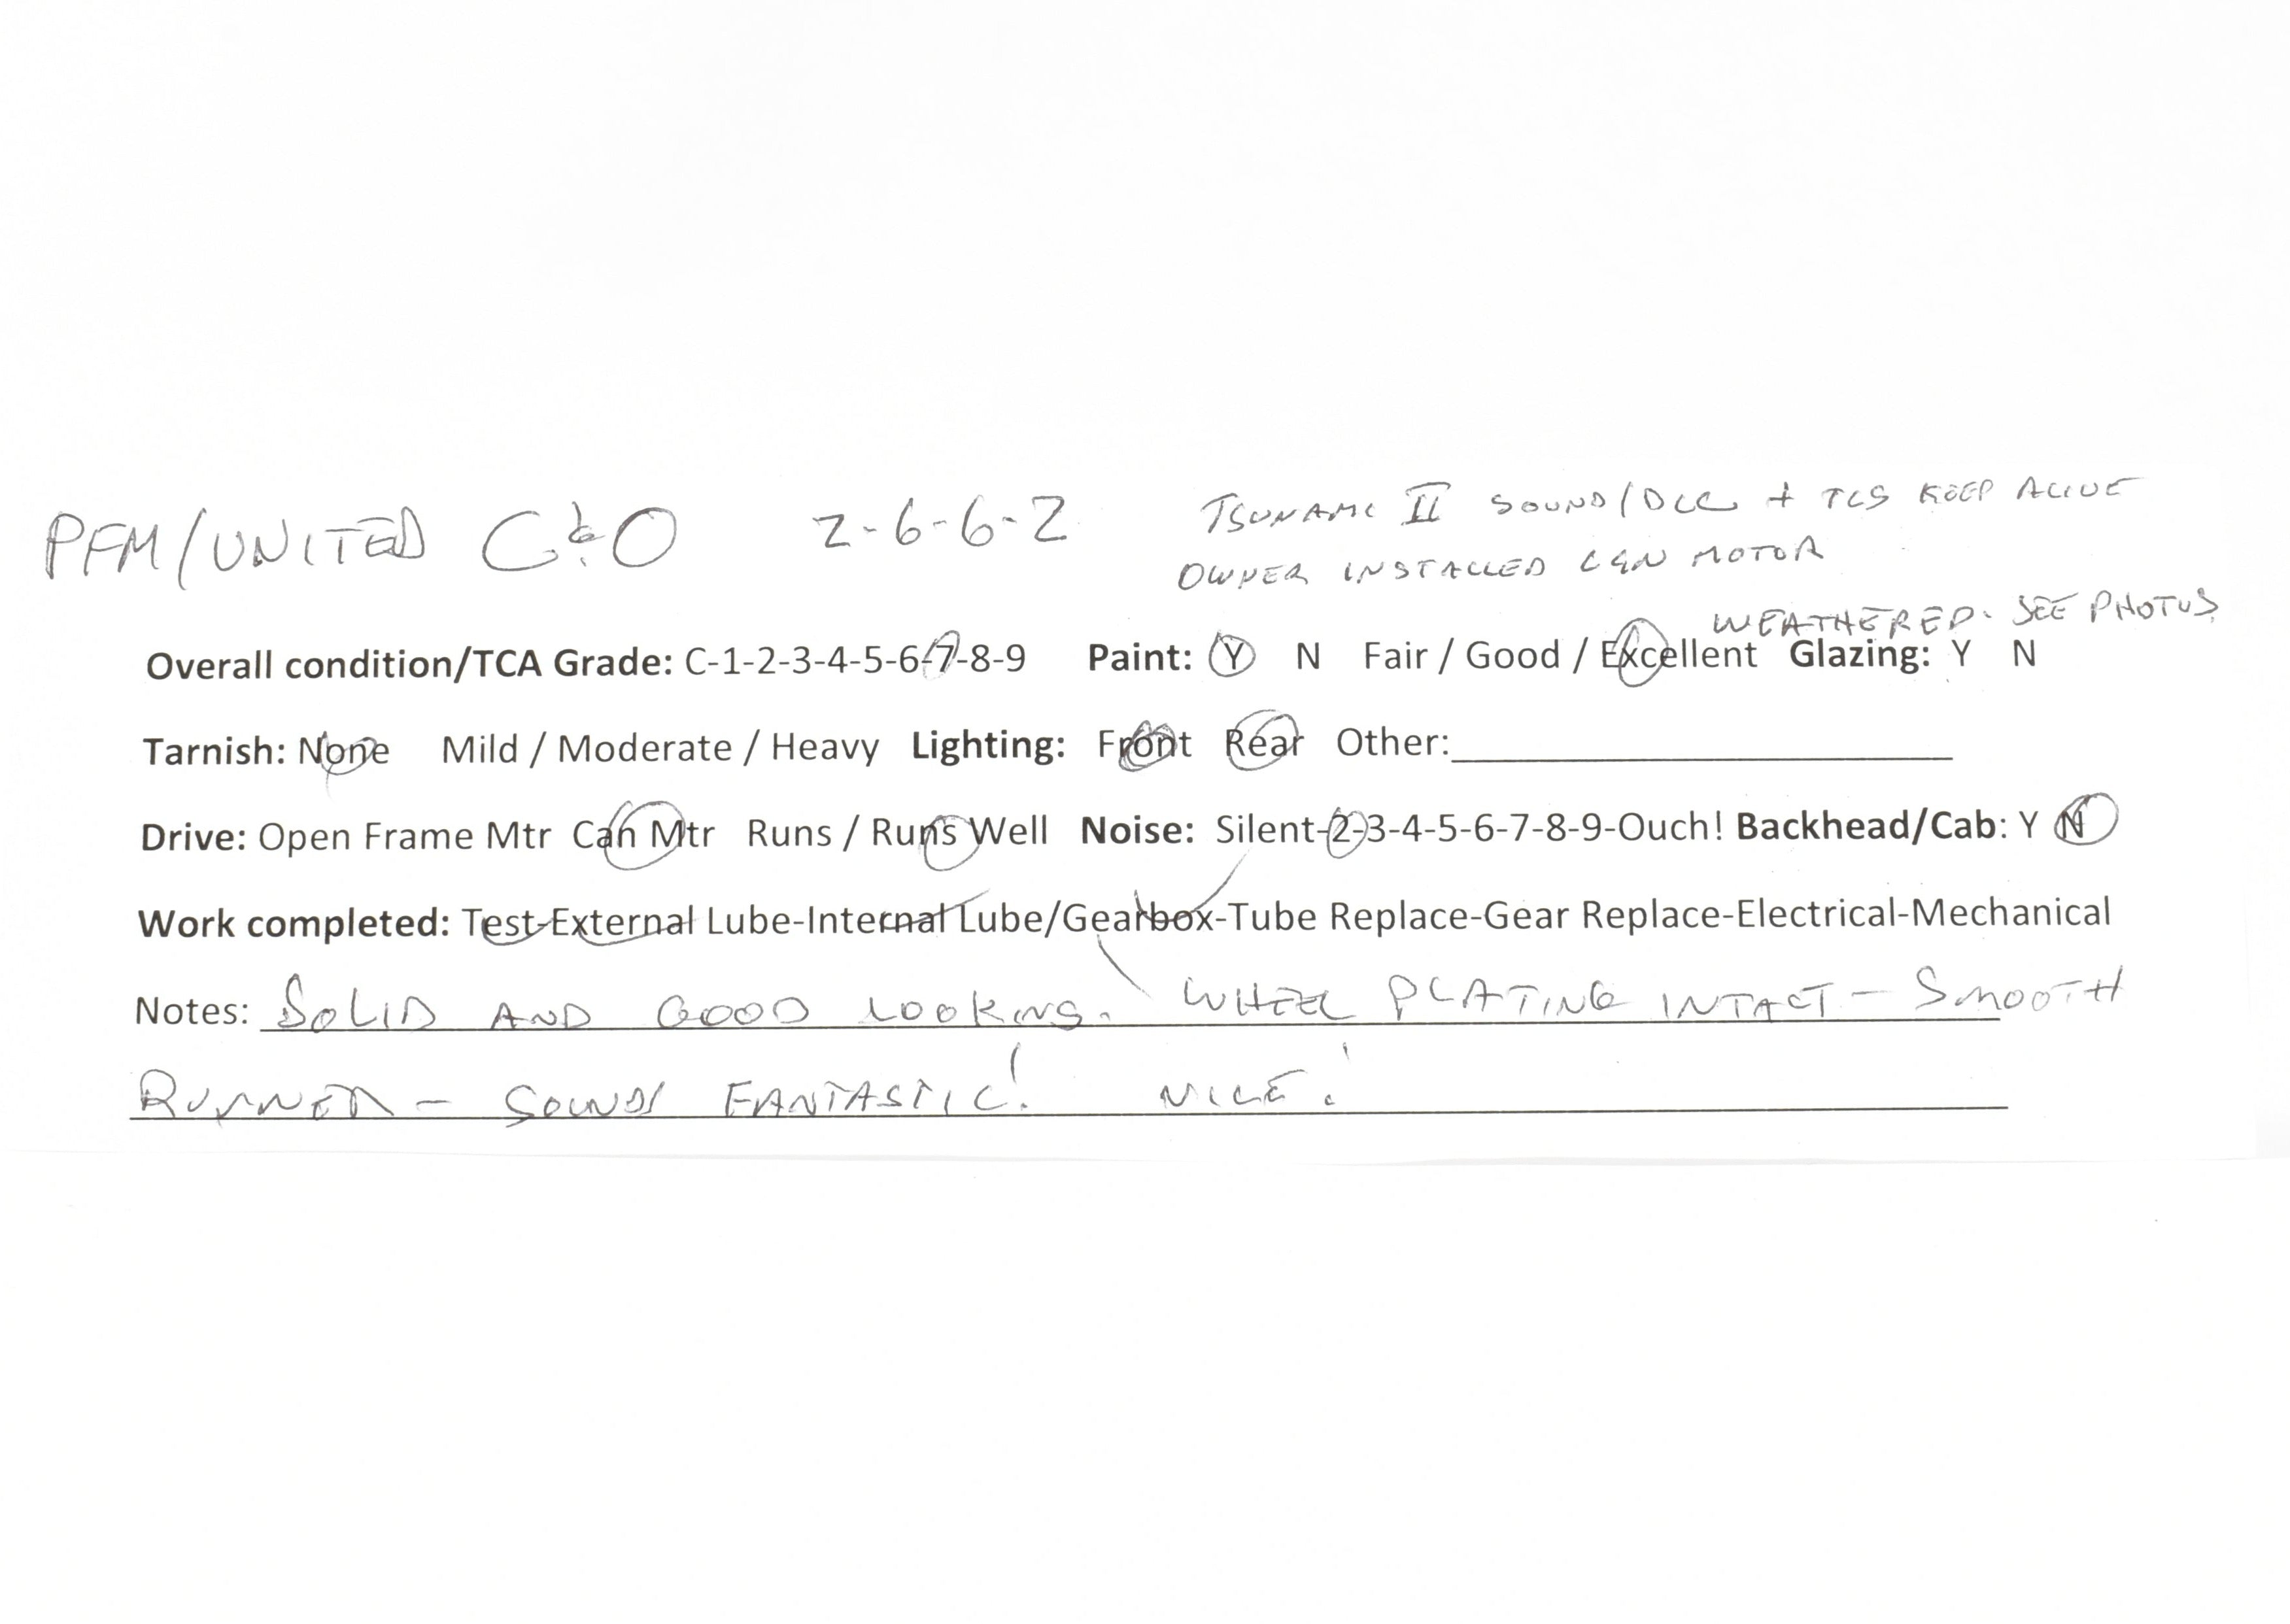 PFM/UNITED C&O 2-6-6-2 TSUNAMI II SOUND/DCC + TCS KEEP ALIVE
OWNER INSTALLED CAN MOTOR
WEATHERED. SEE PHOTOS
Overall condition/TCA Grade: C-1-2-3-4-5-6-7-8-9 Paint: Y N Fair / Good / Excellent Glazing: Y N
Tarnish: None Mild / Moderate / Heavy Lighting: Front Rear Other:
Drive: Open Frame Mtr Can Mtr Runs / Runs Well Noise: Silent-2-3-4-5-6-7-8-9-Ouch! Backhead/Cab: Y N
Work completed: Test-External Lube-Internal Lube/Gearbox-Tube Replace-Gear Replace-Electrical-Mechanical
Notes: SOLID AND GOOD LOOKING. WHEEL PLATING INTACT - SMOOTH
RUNNER - SOUNDS FANTASTIC! NICE!